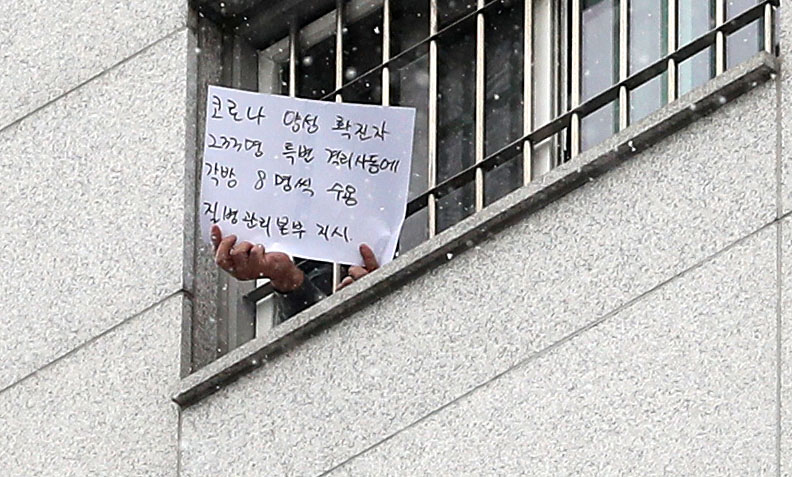 코로나 양성 확진자
233명 특변 격리사동에
각방 8명씩 수용
질병관리본부 지시.